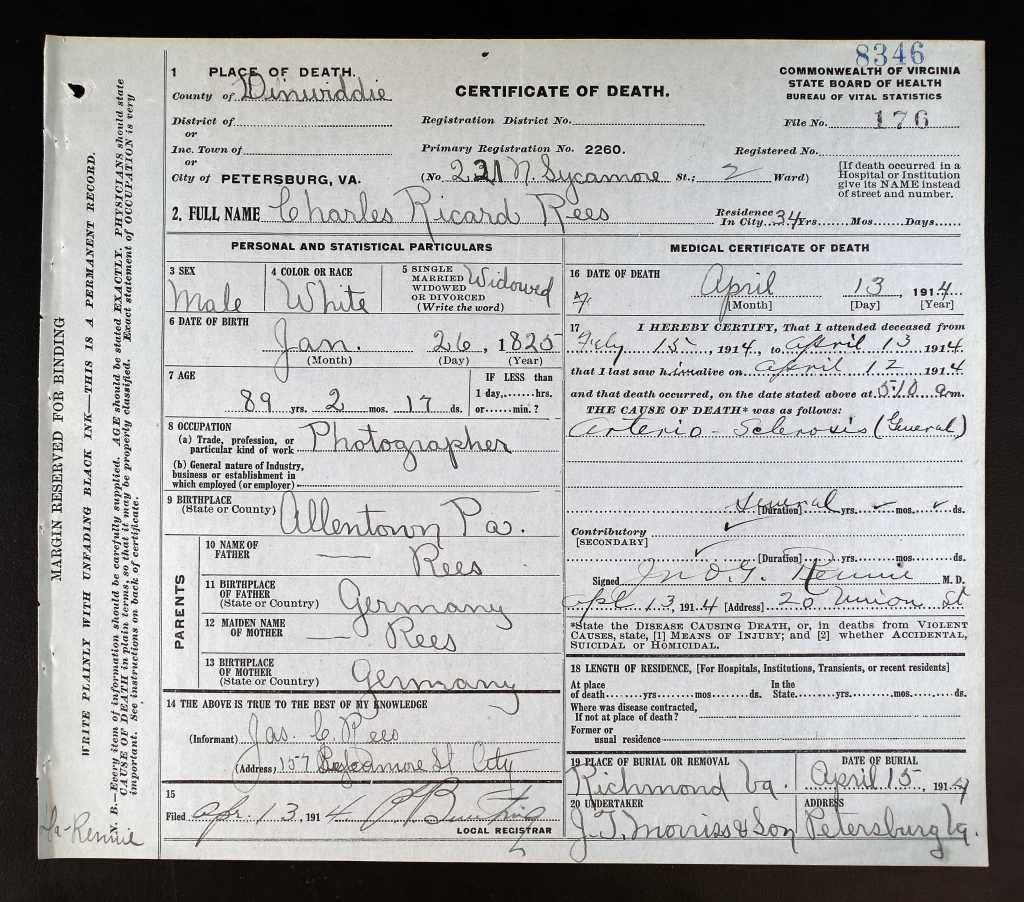 8346
1 PLACE OF DEATH.
County of Dinwiddie
CERTIFICATE OF DEATH.
COMMONWEALTH OF VIRGINIA
STATE BOARD OF HEALTH
BUREAU OF VITAL STATISTICS
District of
or
Registration District No.
File No. 176
Inc. Town of
or
Primary Registration No. 2260.
Registered No.
City of PETERSBURG, VA.
(No 231 N. Sycamore St.; 2 Ward)
[If death occurred in a
Hospital or Institution
give its NAME instead
of street and number.
2. FULL NAME Charles Ricard Rees
Residence
In City 34 Yrs. Mos. Days.
PERSONAL AND STATISTICAL PARTICULARS
3 SEX
Male
4 COLOR OR RACE
White
5 SINGLE
MARRIED
WIDOWED
OR DIVORCED
(Write the word)
Widowed
6 DATE OF BIRTH
Jan. 26, 1825
(Month) (Day) (Year)
7 AGE
89 yrs. 2 mos. 17 ds.
IF LESS than
1 day, hrs.
or min.?
8 OCCUPATION
(a) Trade, profession, or
particular kind of work
Photographer
(b) General nature of Industry,
business or establishment in
which employed (or employer)
9 BIRTHPLACE
(State or County)
Allentown Pa.
PARENTS
10 NAME OF
FATHER
— Rees
11 BIRTHPLACE
OF FATHER
(State or Country)
Germany
12 MAIDEN NAME
OF MOTHER
— Rees
13 BIRTHPLACE
OF MOTHER
(State or Country)
Germany
14 THE ABOVE IS TRUE TO THE BEST OF MY KNOWLEDGE
(Informant) Jas. C. Rees
(Address) 157 Sycamore St City
15
Filed Apr. 13, 1914
LOCAL REGISTRAR
MEDICAL CERTIFICATE OF DEATH
16 DATE OF DEATH
April 13 1914
[Month] [Day] [Year]
17 I HEREBY CERTIFY, That I attended deceased from
15, 1914, to April 13 1914
that I last saw him alive on April 12 1914
and that death occurred, on the date stated above at 5-10 a.m.
THE CAUSE OF DEATH* was as follows:
Arterio-Sclerosis (General)
several
[Duration] yrs. mos. ds.
Contributory
[SECONDARY]
[Duration] yrs. mos. ds.
Signed Jno. G. Rennie M. D.
Apl 13, 1914 [Address] 20 Union St
*State the DISEASE CAUSING DEATH, or, in deaths from VIOLENT
CAUSES, state, [1] MEANS OF INJURY; and [2] whether ACCIDENTAL,
SUICIDAL or HOMICIDAL.
18 LENGTH OF RESIDENCE, [For Hospitals, Institutions, Transients, or recent residents]
At place
of death yrs. mos. ds.
In the
State yrs. mos. ds.
Where was disease contracted,
If not at place of death?
Former or
usual residence
19 PLACE OF BURIAL OR REMOVAL
Richmond Va.
DATE OF BURIAL
April 15, 1914
20 UNDERTAKER
J. T. Morriss & Son
ADDRESS
Petersburg Va.
MARGIN RESERVED FOR BINDING
WRITE PLAINLY WITH UNFADING BLACK INK—THIS IS A PERMANENT RECORD.
N. B.—Every item of information should be carefully supplied. AGE should be stated EXACTLY. PHYSICIANS should state
CAUSE OF DEATH in plain terms, so that it may be properly classified. Exact statement of OCCUPATION is very
important. See instructions on back of certificate.
Rennie